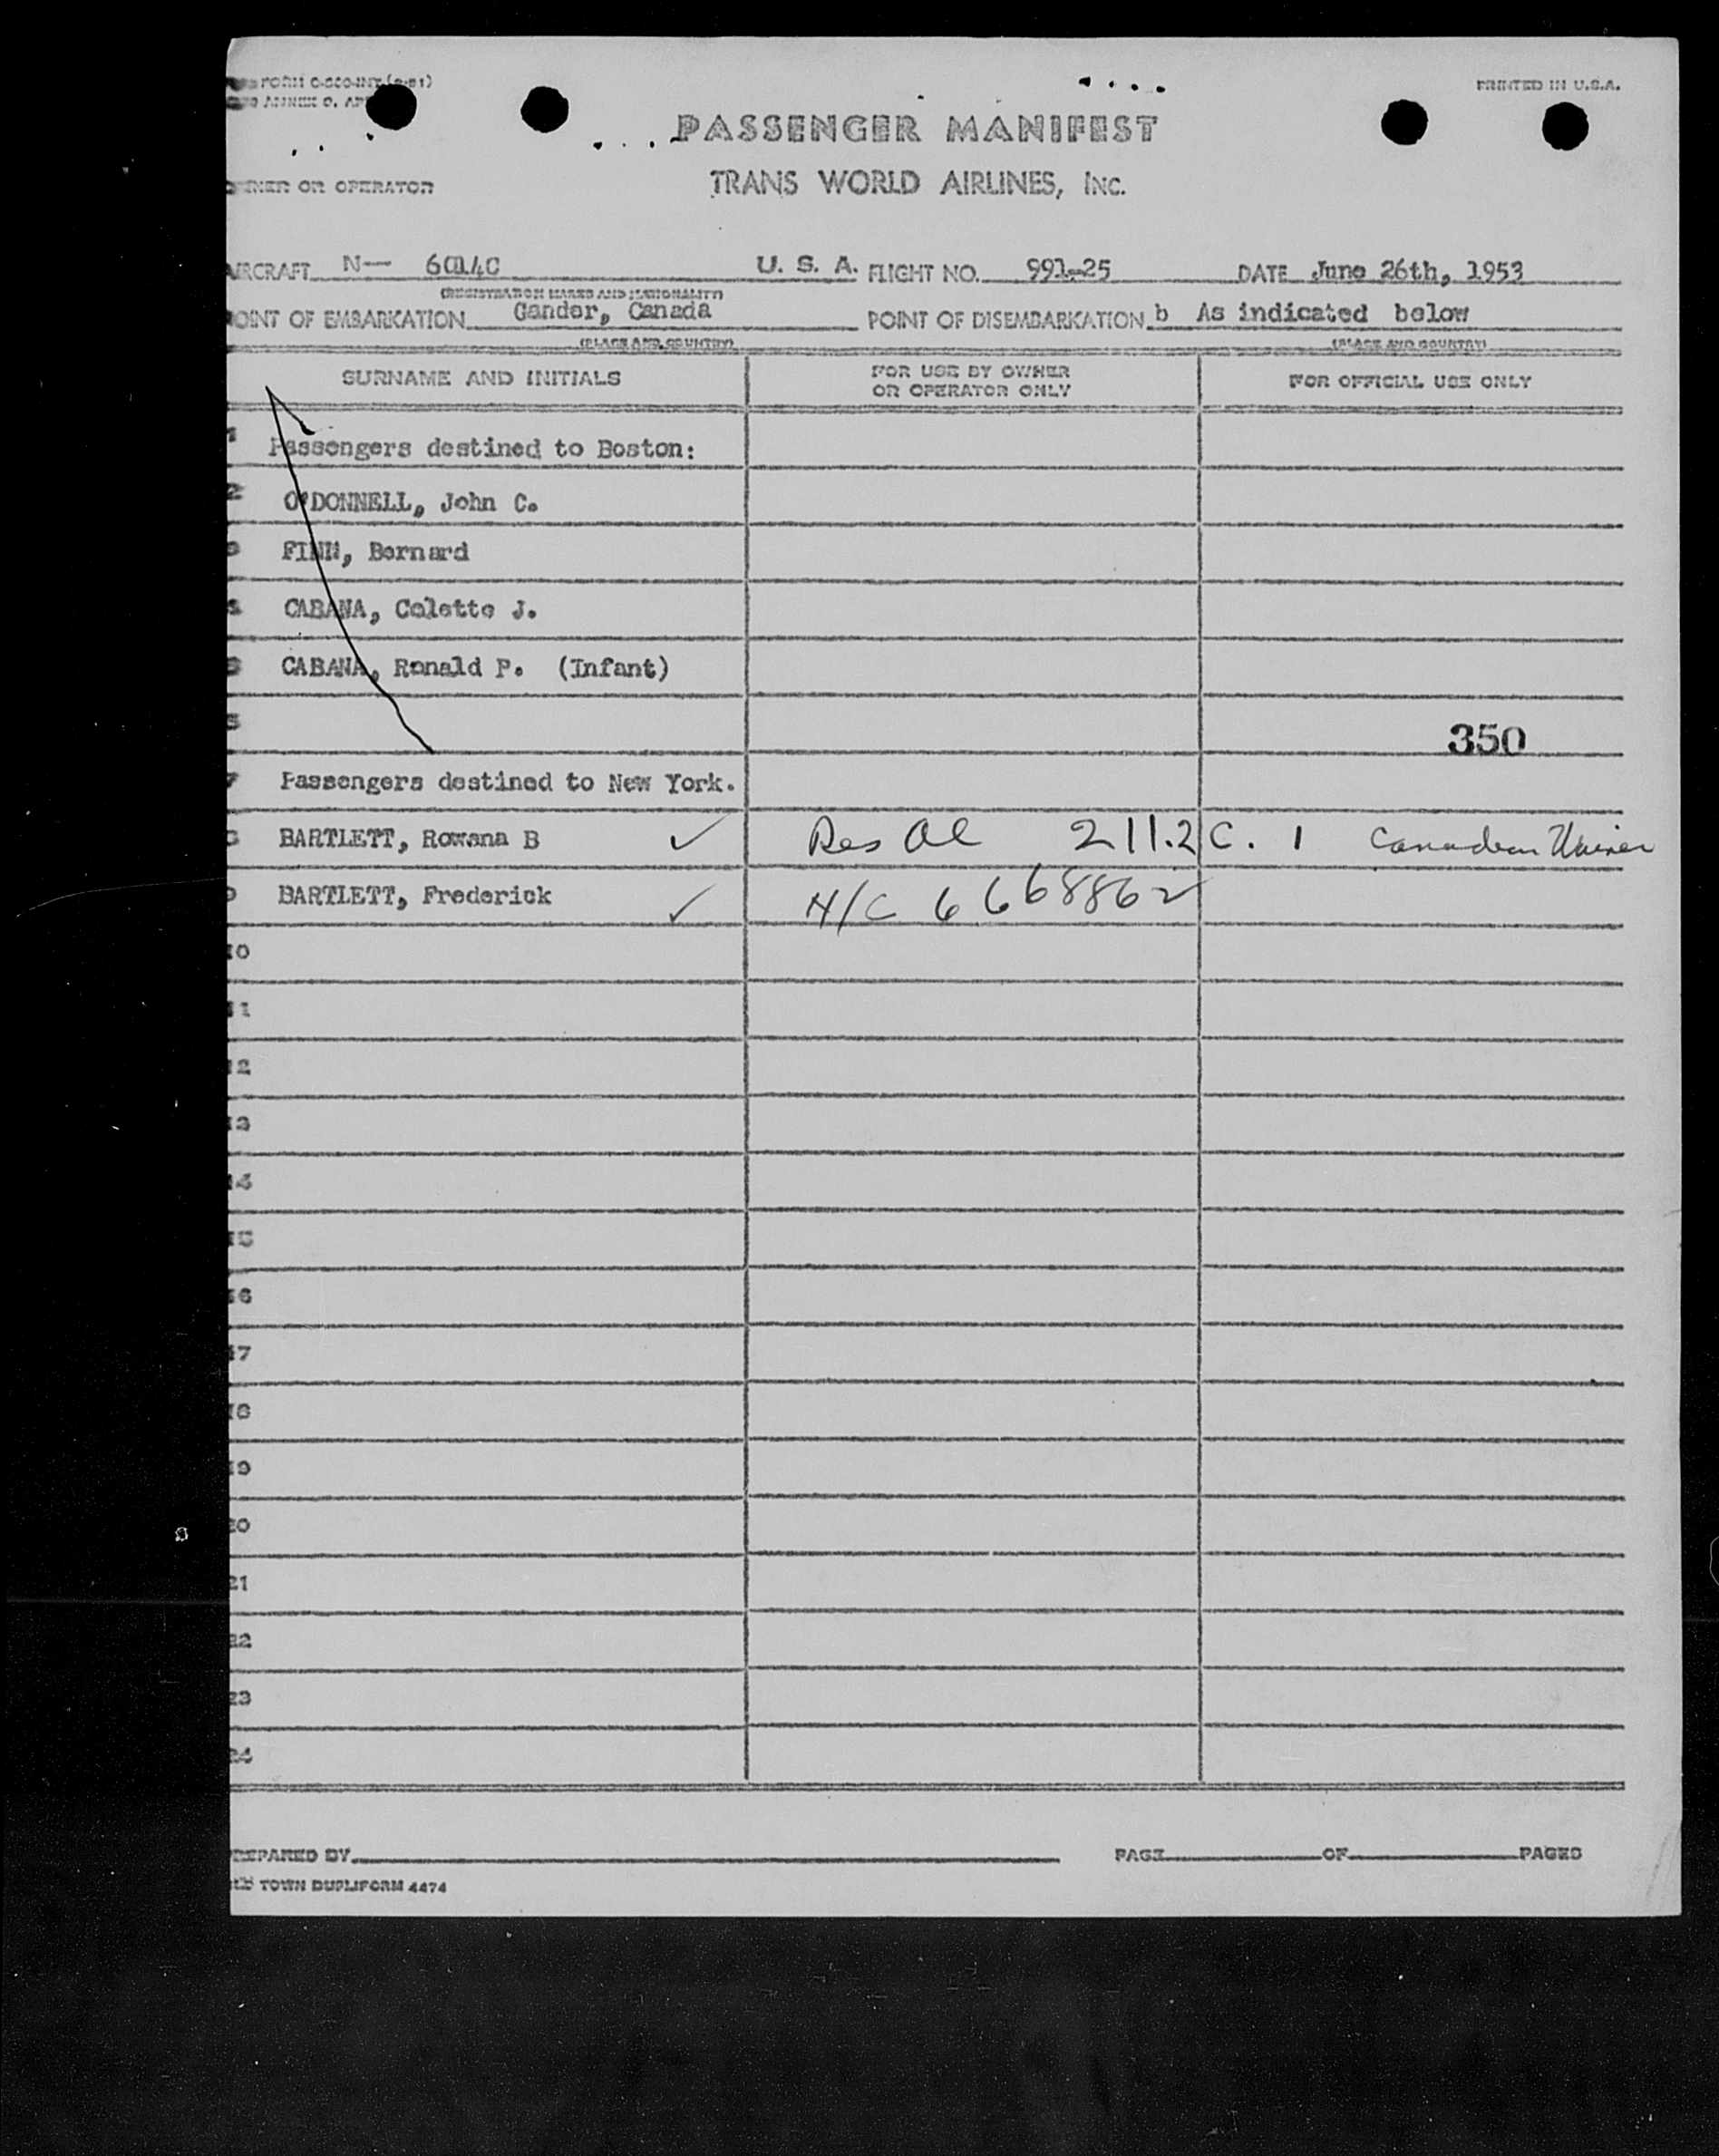 FORM O-200-INT (2-51)
ANNEX 9, AP
PRINTED IN U.S.A.
PASSENGER MANIFEST
OWNER OR OPERATOR
TRANS WORLD AIRLINES, INC.
AIRCRAFT N— 6014C U. S. A. FLIGHT NO. 991-25 DATE June 26th, 1953
(REGISTRATION MARKS AND NATIONALITY)
POINT OF EMBARKATION Gander, Canada POINT OF DISEMBARKATION b As indicated below
(PLACE AND COUNTRY) (PLACE AND COUNTRY)
SURNAME AND INITIALS FOR USE BY OWNER OR OPERATOR ONLY FOR OFFICIAL USE ONLY
1 Passengers destined to Boston:
2 O'DONNELL, John C.
3 FINN, Bernard
4 CABANA, Colette J.
5 CABANA, Ronald P. (Infant)
6 350
7 Passengers destined to New York.
8 BARTLETT, Rowana B ✓ Res Al 211.2 C. 1 Canadian Waiver
9 BARTLETT, Frederick ✓ N/C 6668862
10
11
12
13
14
15
16
17
18
19
20
21
22
23
24
PREPARED BY PAGE OF PAGES
TOWN DUPLIFORM 4474